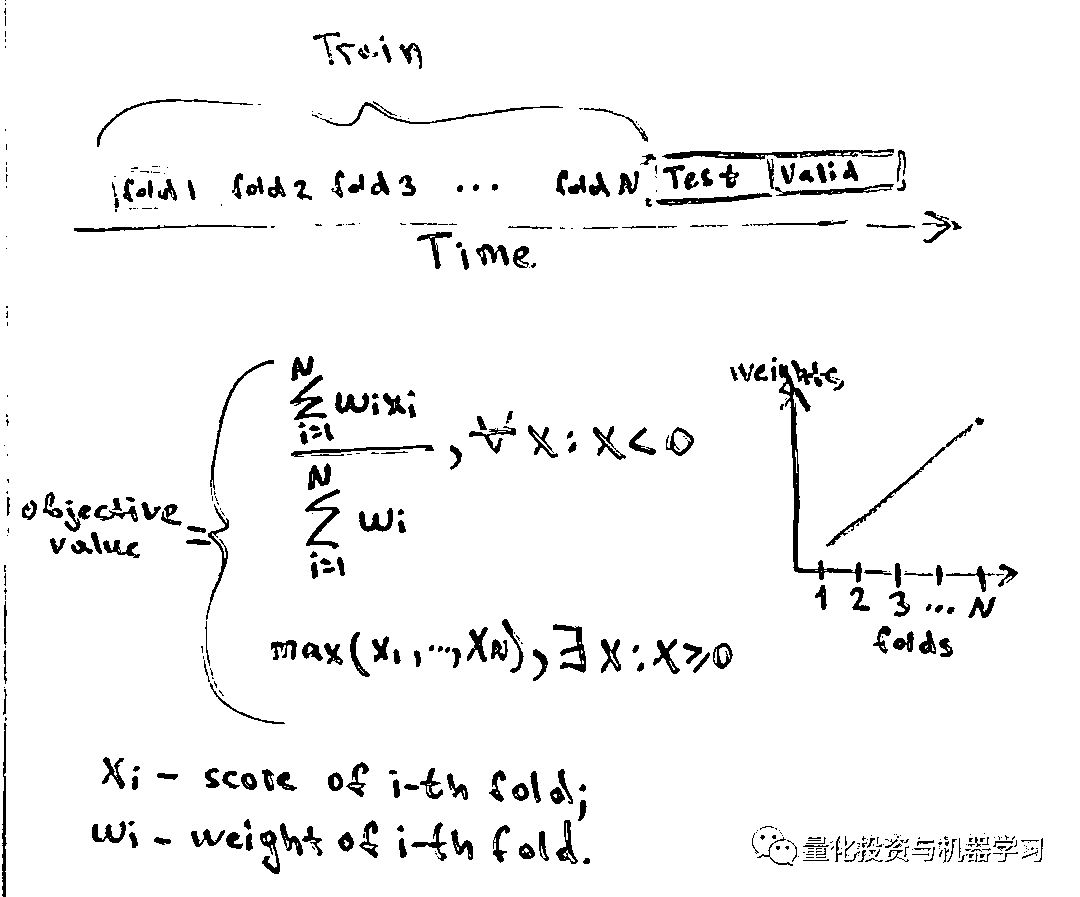 Train
fold 1 fold 2 fold 3 ... fold N Test Valid
Time
objective value = { \frac{\sum_{i=1}^{N} w_i x_i}{\sum_{i=1}^{N} w_i}, ∀ x : x < 0
max(x_1, ..., x_N), ∃ x : x ≥ 0
weights
1 2 3 ... N
folds
x_i – score of i-th fold;
w_i – weight of i-th fold.
量化投资与机器学习